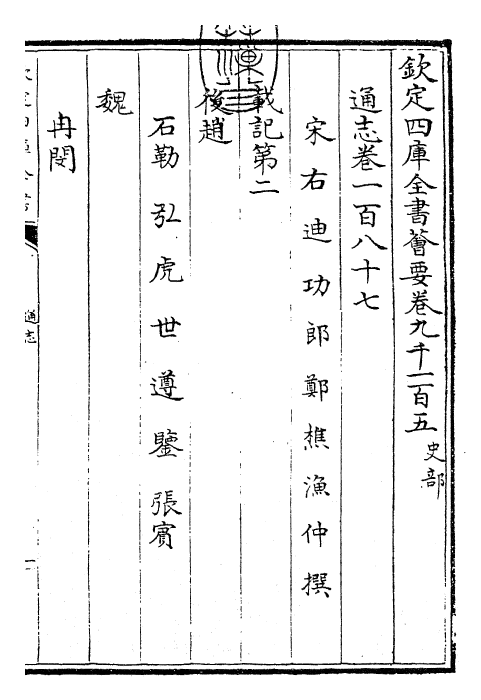 欽定四庫全書薈要卷九千一百五 史部
通志卷一百八十七
宋右迪功郎鄭樵漁仲撰
載記第二
後趙
石勒 弘 虎 世 遵 鑒 張賓
魏
冉閔
通志